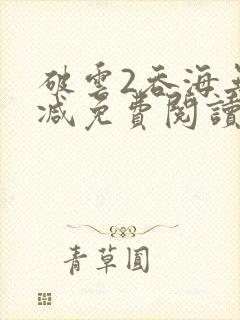 破雲2吞海無
減免費閱讀
青草圓